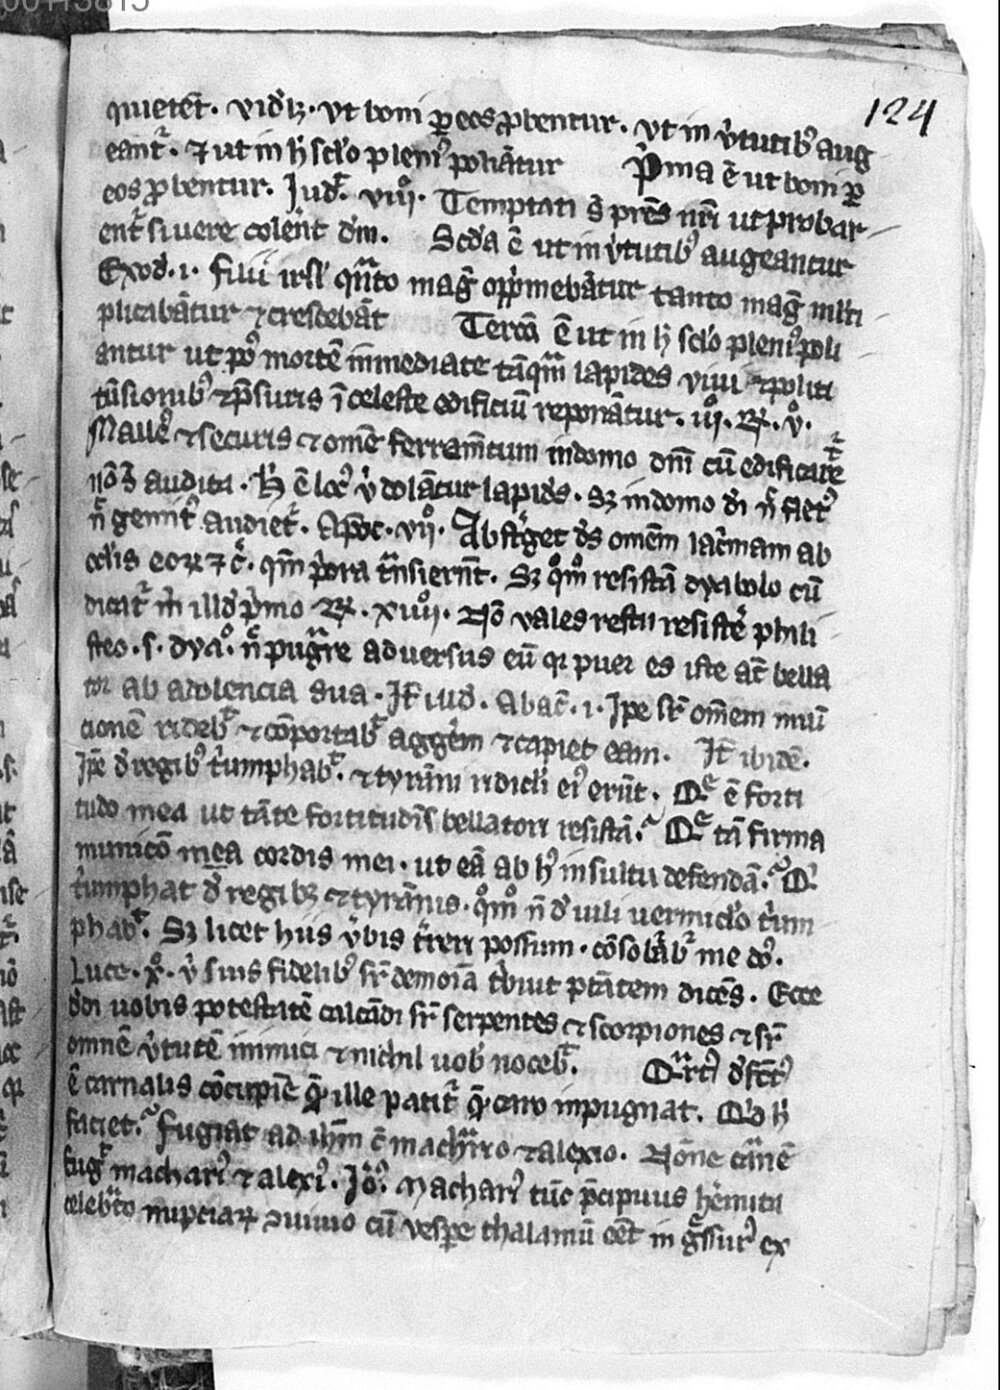 00113815
124
quietēt. vidꝫ. ut boni ꝑ eos ꝓbentur. ut in v̓tutibꝰ aug
eant᷑. ⁊ ut in h̓ sclo pleniꝰ poliātur P̓ma ē ut boni ꝑ
eos ꝓbentur. Jud͛. viijͦ. Temptati s̄ pr̄es nr̄i ut probar
ent᷑ si vere coler̄nt dm̄. Scd̓a ē ut in v̓tutibꝰ augeantur
Exod͛. i. filii isrl̓ qn̄to mag̓ opp̓mebātur tanto mag̓ ml̓ti
plicabātur ⁊ crescebāt Tercā ē ut in h̓ sclo pleniꝰ poli
antur ut pꝰ mortē inmediate tāqm̄ lapides vivi ⁊ politi
tūsionibꝰ ⁊ p̄suris ī celeste edificiū reponātur. iijͦ. Rͤ. vͦ.
Mallꝰ ⁊ securis ⁊ omē ferram̄tum in domo dn̄i cū edificaret᷑
nō s̄t audita. h̓ ē locꝰ v̓ dolātur lapid̓s. sꝫ in domo d̓i n̄ fiet
n̄ gemitꝰ audiet᷑. Apoc̄. vijͦ. Absterget d̓s omēm lac̓mam ab
ocl̓is eoꝝ ⁊ c̄. qm̄ p̓ora tn̄sier̄nt. Sꝫ qͦmͦ resistā dyabolo cū
dicat᷑ m̓ illd̓ p̓mo Rͤ. xvijͦ. Nō vales resti resistē phili
steo. s. dyaͦ. n̄ pugͣre adversus eū qꝛ puer es iste aūt bella
tor ab adolencia sua. Jt̄ iud̓. Abac̄. i. Jpe sr̄ omēm muni
cionē rideb᷑ ⁊ cōportab᷑ agger̄m ⁊ capiet eam. Jt̄ ibidē.
Jpe d̓ regibꝰ t̓umphab᷑. ⁊ tyrāni ridicl̓i eiꝰ erūt. Qͤ ē forti
tudo mea ut tāte fortitudīs bellatori resistā. Qͤ tā firma
municō mea cordis mei. ut eā ab hꝰ insultu defendā. Qͥ
t̓umphat d̓ regibꝫ ⁊ tyrānis. qͦmͦ n̄ d̓ vili vermicl̓o t̓um
phab᷑. Sꝫ licet hiis v̓bis t̓reri possum. cōsolab᷑ me dꝰ.
Luce. xͦ. v̓ suis fidelibꝰ sr̄ demoīa t̓buit ptātem dicēs. Ecce
d̓di vobis potestatē calcādi sr̄ serpentes ⁊ scorpiones ⁊ sr̄
omnē v̓tutē inimici ⁊ nichil vob̓ noceb᷑. Qͣrtꝰ d̓fctꝰ
ē carnalis cōcupiē qͣ ille patit᷑ qͣ caro inpugnat. Qͥd h̓
faciet. fugiat ad ihm̄ c̄ machͣrio ⁊ alexio. Nōne
fug͛ machariꝰ ⁊ alexiꝰ. Macharꝰ tūc p̄cipuus
celebͣto nupciaꝝ ꝯvivio cū vespe thalamū cēt ingͤssurꝰ ex